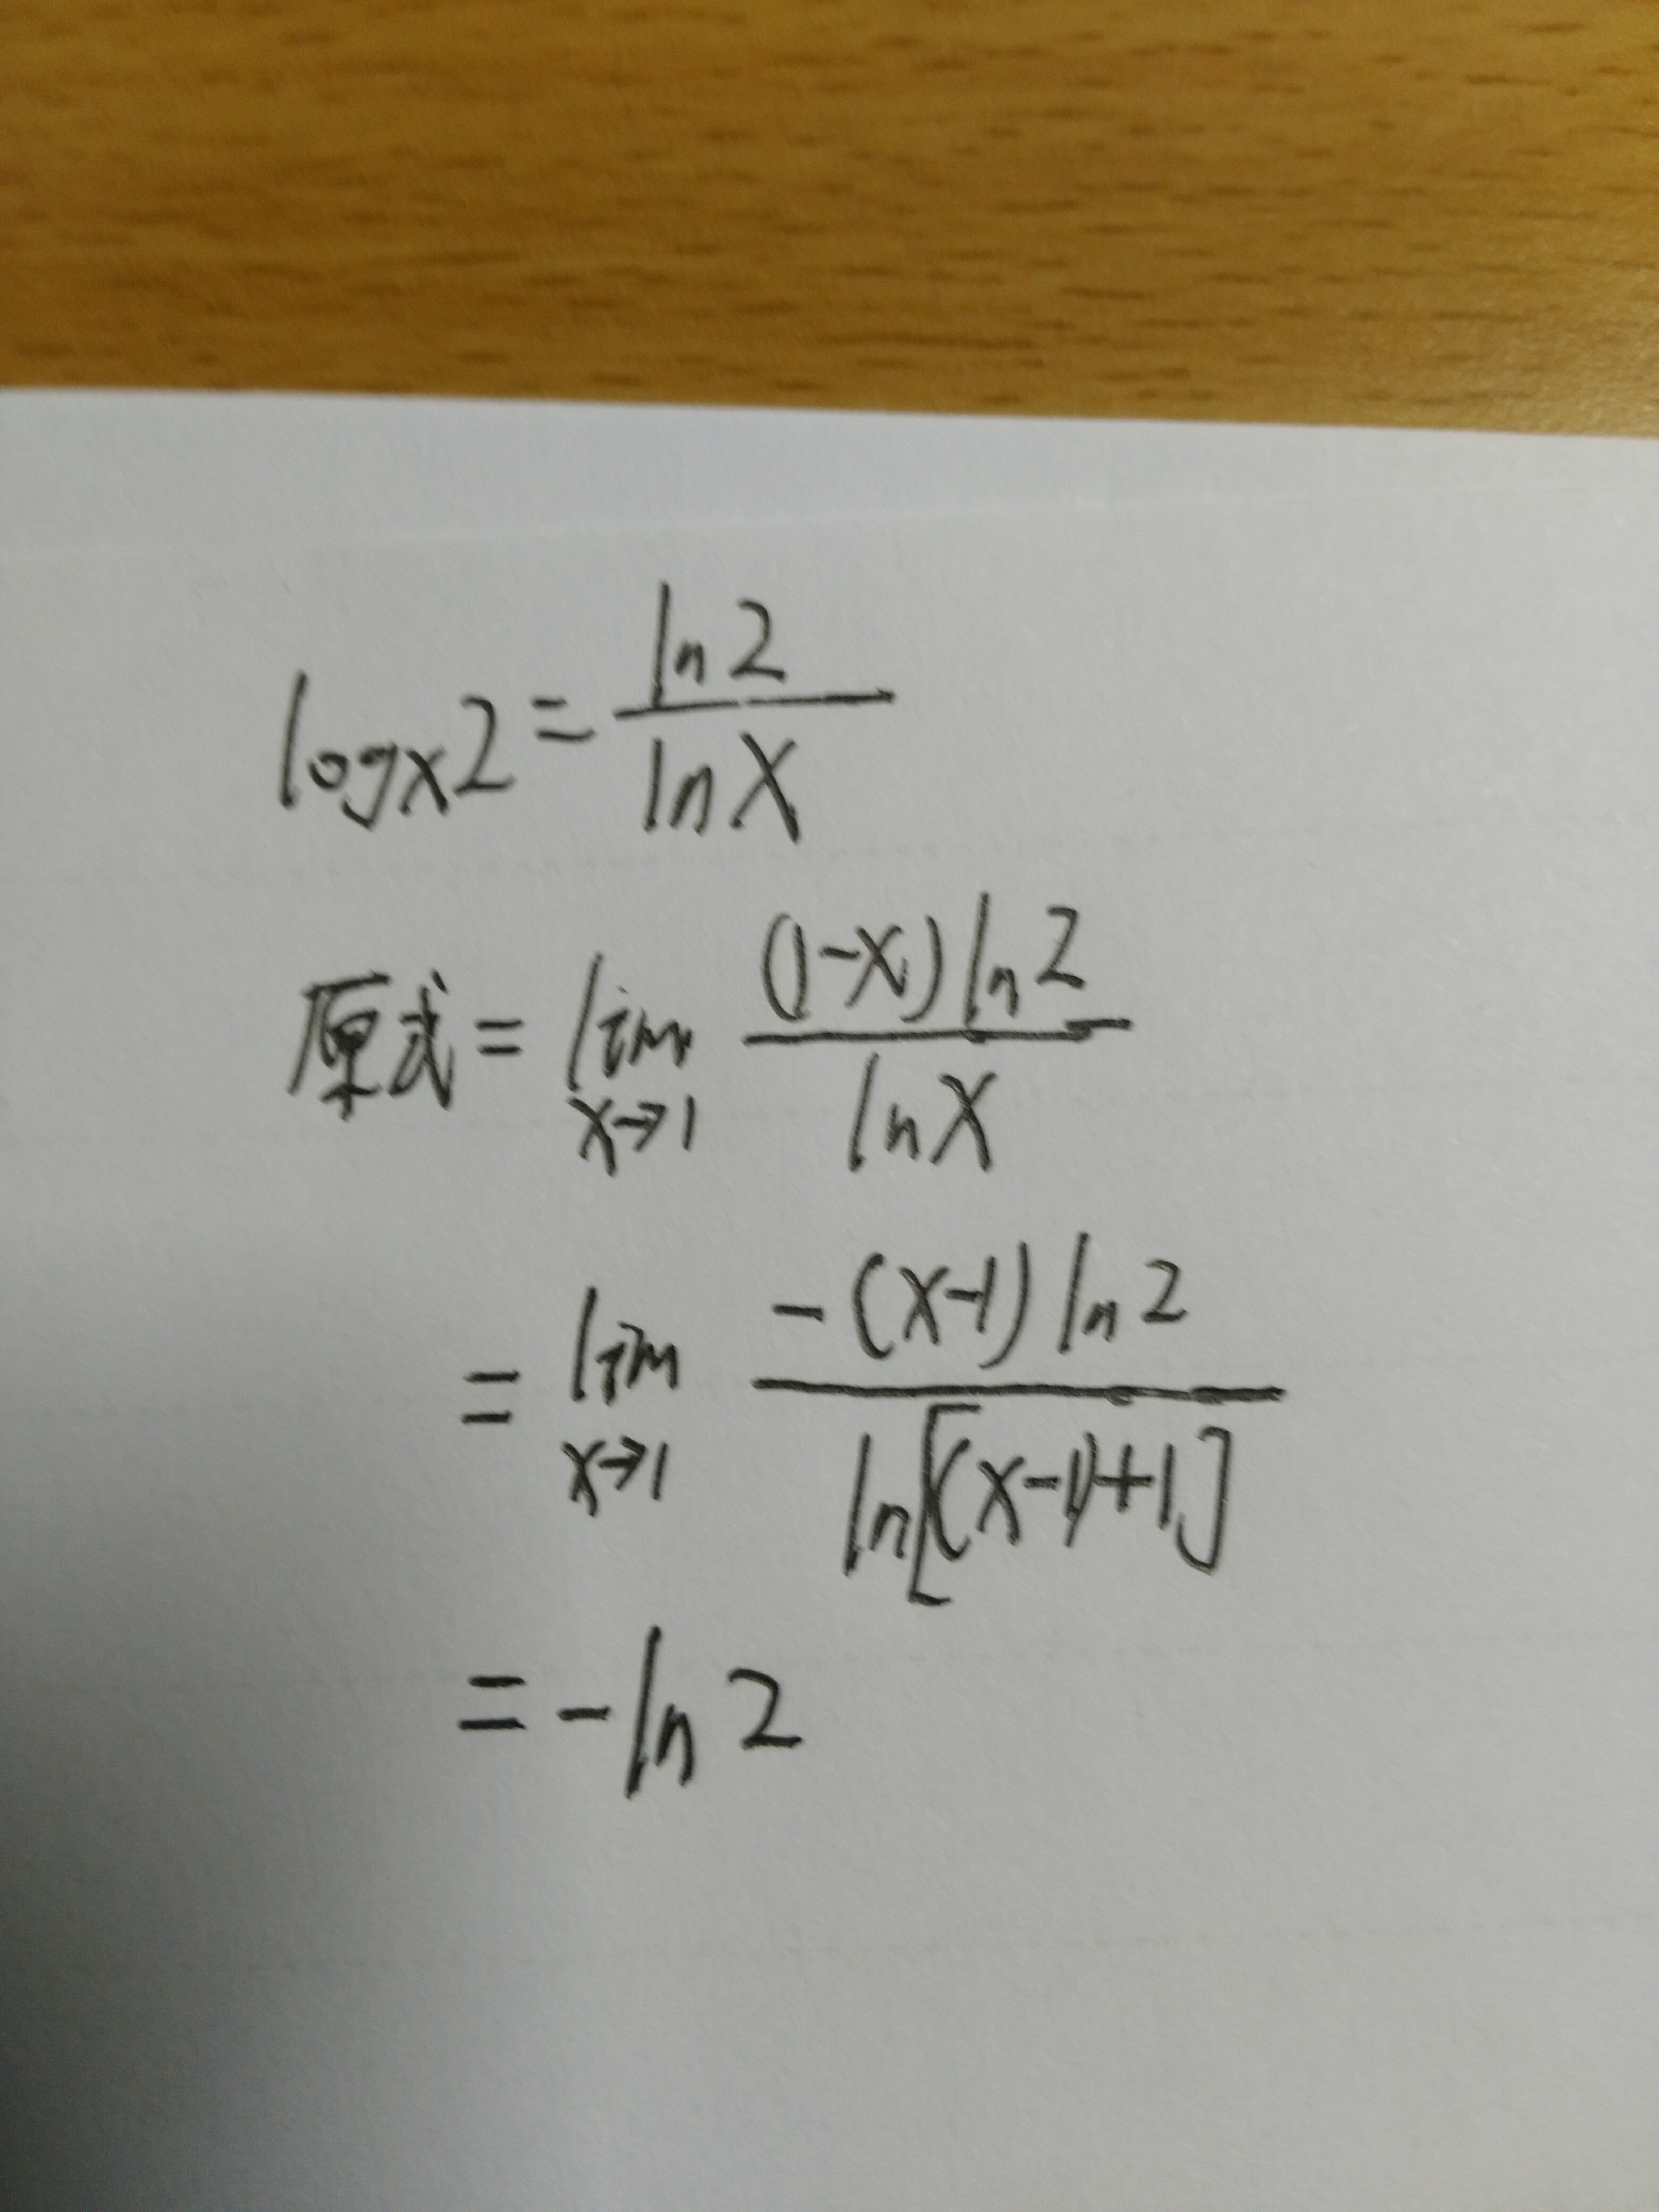 logₓ2 = ln2 / lnx
原式 = lim x→1 (1-x) ln2 / lnx
= lim x→1 -(x-1) ln2 / ln[(x-1)+1]
= -ln2